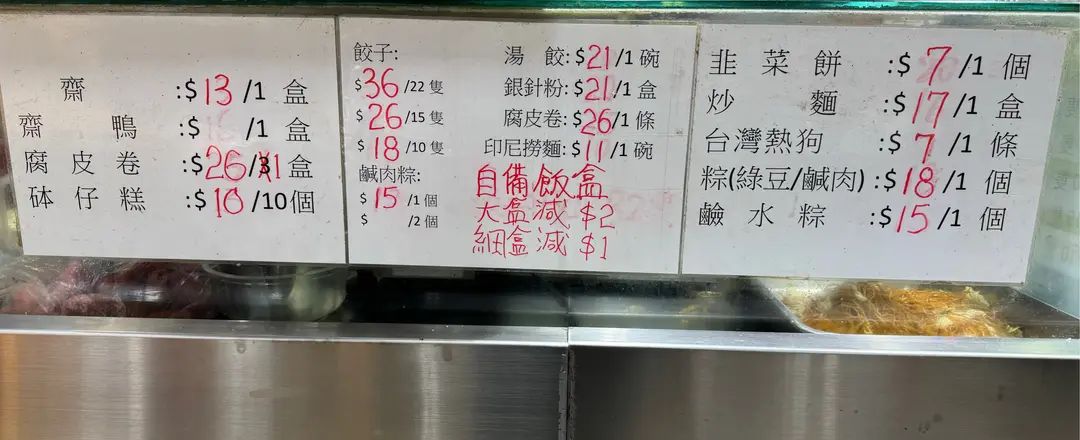 齋 :$13/1 盒
齋 鴨 :$ /1 盒
腐皮卷 :$26/1盒
砵仔糕 :$10/10個
餃子:
$36/22 隻
$26/15 隻
$18/10 隻
鹹肉粽:
$15 /1 個
$ /2 個
湯 餃:$21/1 碗
銀針粉:$21/1 盒
腐皮卷:$26/1 條
印尼撈麵:$11/1 碗
自備飯盒
大盒減 $2
細盒減 $1
韭菜餅 :$7/1 個
炒 麵 :$17/1 盒
台灣熱狗 :$7/1 條
粽(綠豆/鹹肉) :$18/1 個
鹼水粽 :$15/1 個